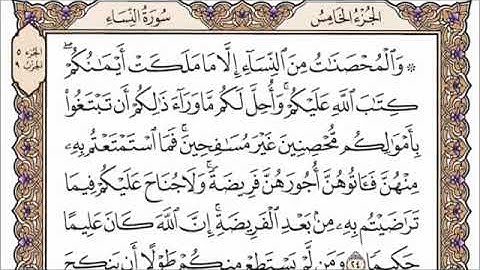 الجزء الخامس
سورة النساء
الجزء ٥
الحزب ٩
وَالْمُحْصَنَاتُ مِنَ النِّسَاءِ إِلَّا مَا مَلَكَتْ أَيْمَانُكُمْ ۖ
كِتَابَ اللَّهِ عَلَيْكُمْ ۚ وَأُحِلَّ لَكُم مَّا وَرَاءَ ذَٰلِكُمْ أَن تَبْتَغُوا
بِأَمْوَالِكُم مُّحْصِنِينَ غَيْرَ مُسَافِحِينَ ۚ فَمَا اسْتَمْتَعْتُم بِهِ
مِنْهُنَّ فَآتُوهُنَّ أُجُورَهُنَّ فَرِيضَةً ۚ وَلَا جُنَاحَ عَلَيْكُمْ فِيمَا
تَرَاضَيْتُم بِهِ مِن بَعْدِ الْفَرِيضَةِ ۚ إِنَّ اللَّهَ كَانَ عَلِيمًا
حَكِيمًا ٢٤ وَمَن لَّمْ يَسْتَطِعْ مِنكُمْ طَوْلًا أَن يَنكِحَ